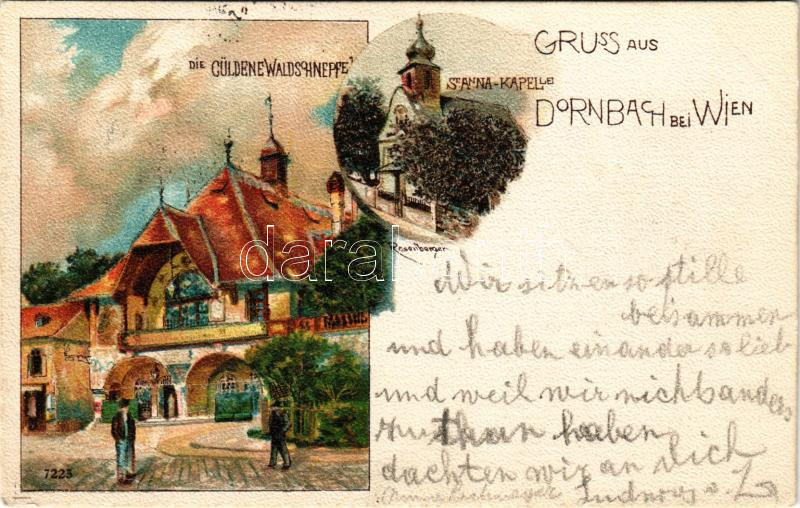 DIE GÜLDENE WALDSCHNEPFE
ST ANNA-KAPELLE
GRUSS AUS
DORNBACH BEI WIEN
Rosenberger
darabanth
7223
Wir sitzen so stille
beisammen
und haben einander so lieb
und weil wir nichts anders
zu thun haben
dachten wir an Dich